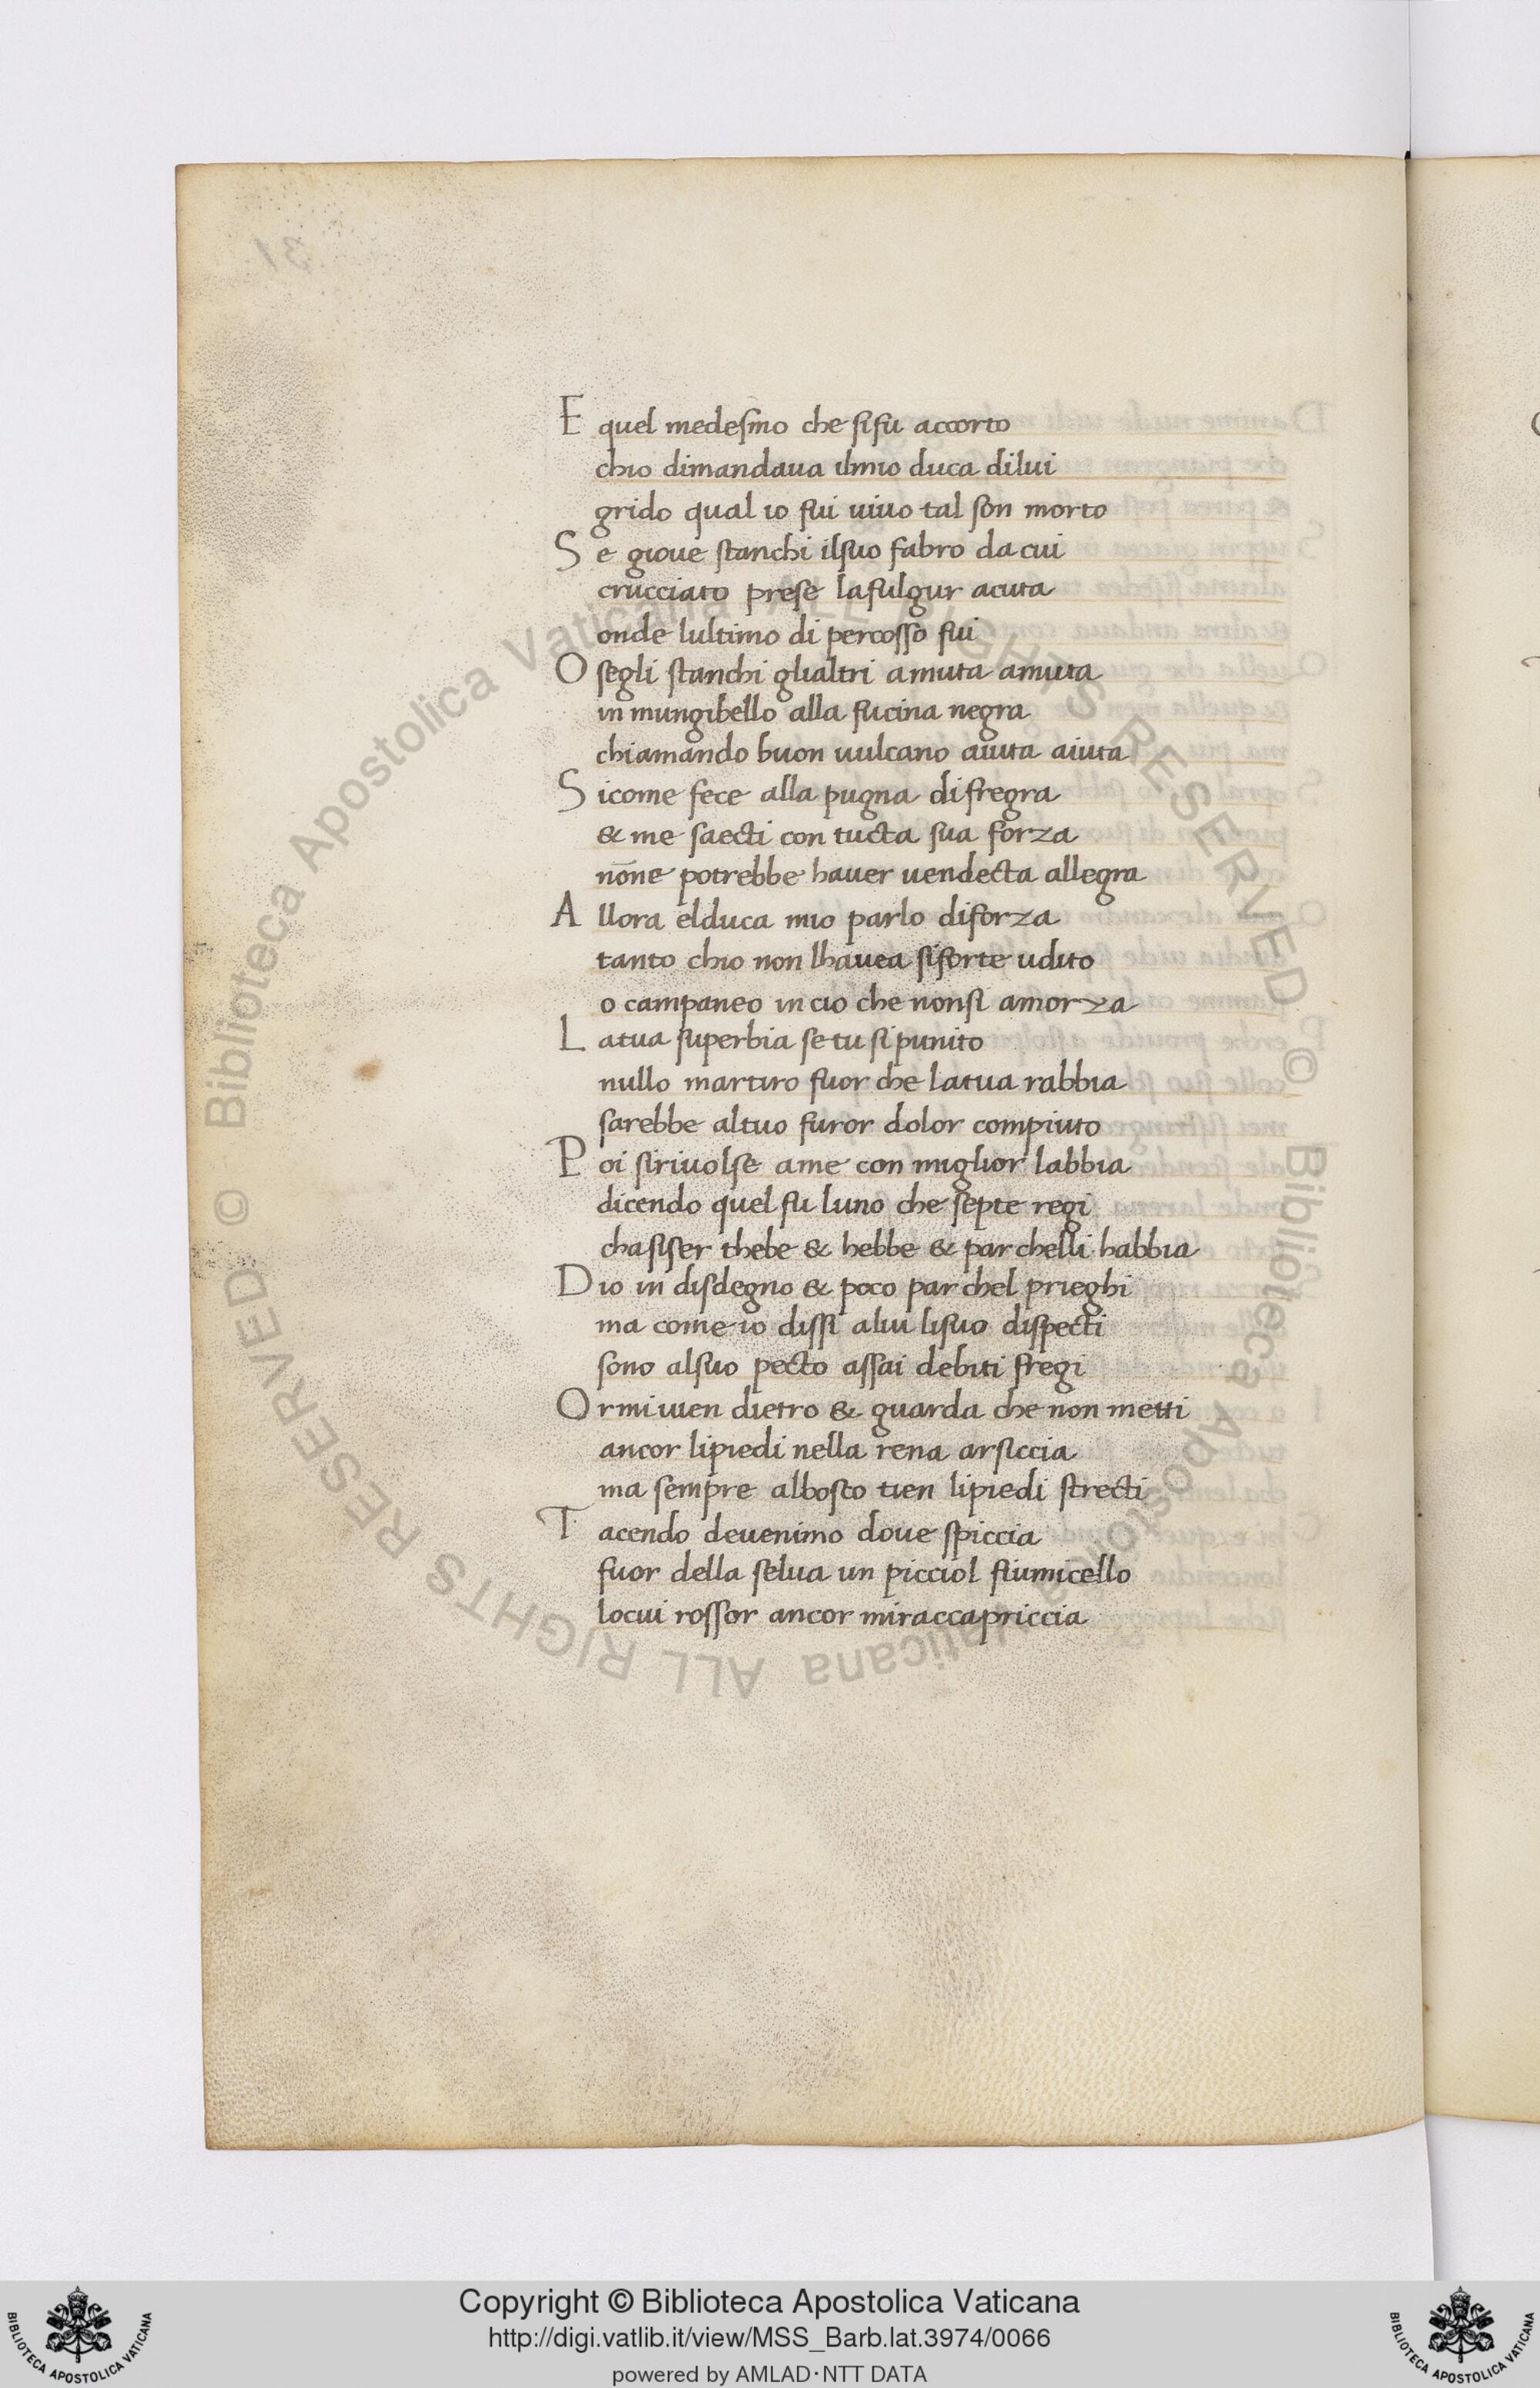 E quel medesmo che sisu accorto
chio dimandaua ilmio duca dilui
grido qual io fui uiuo tal son morto
S e gioue stanchi ilsuo fabro dacui
crucciato prese lafulgur acuta
onde lultimo di percosso fui
O segli stanchi glialtri amuta amuta
in mungibello alla fucina negra
chiamando buon uulcano aiuta aiuta
S icome fece alla pugna difregra
& me saecti con tucta sua forza
nōne potrebbe hauer uendecta allegra
A llora elduca mio parlo diforza
tanto chio non lhauea siforte udito
o campaneo in cio che nonsi amorza
L atua superbia se tu si punito
nullo martiro fuor che latua rabbia
sarebbe altuo furor dolor compiuto
P oi siriuolse ame con miglior labbia
dicendo quel fu luno che septe regi
chasiser thebe & hebbe & par chelli habbia
D io in disdegno & poco par chel prieghi
ma come io dissi alui lisuo dispecti
sono alsuo pecto assai debiti fregi
O rmi uien dietro & guarda che non metti
ancor lipiedi nella rena arsiccia
ma sempre albosco tien lipiedi strecti
T acendo deuenimo doue spiccia
fuor della selua un picciol fiumicello
locui rossor ancor miraccapriccia
Biblioteca Apostolica Vaticana ALL RIGHTS RESERVED ©
Biblioteca Apostolica Vaticana ALL RIGHTS RESERVED ©
Copyright © Biblioteca Apostolica Vaticana
http://digi.vatlib.it/view/MSS_Barb.lat.3974/0066
powered by AMLAD·NTT DATA
BIBLIOTECA APOSTOLICA VATICANA
BIBLIOTECA APOSTOLICA VATICANA